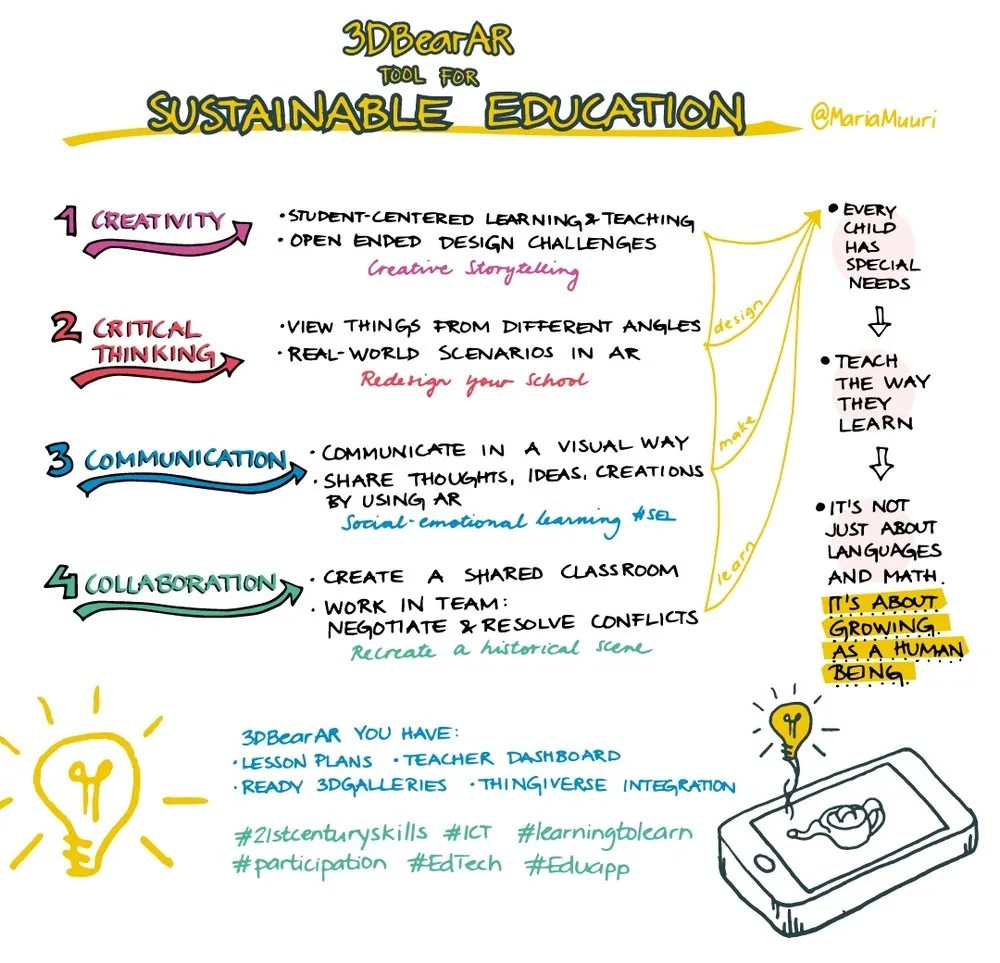 3DBearAR
TOOL FOR
SUSTAINABLE EDUCATION
@MariaMuuri
1 CREATIVITY
• STUDENT-CENTERED LEARNING & TEACHING
• OPEN ENDED DESIGN CHALLENGES
Creative Storytelling
2 CRITICAL
THINKING
• VIEW THINGS FROM DIFFERENT ANGLES
• REAL-WORLD SCENARIOS IN AR
Redesign your School
3 COMMUNICATION
• COMMUNICATE IN A VISUAL WAY
• SHARE THOUGHTS, IDEAS, CREATIONS
BY USING AR
Social-emotional learning #SEL
4 COLLABORATION
• CREATE A SHARED CLASSROOM
• WORK IN TEAM:
NEGOTIATE & RESOLVE CONFLICTS
Recreate a historical scene
design
make
learn
• EVERY
CHILD
HAS
SPECIAL
NEEDS
• TEACH
THE WAY
THEY
LEARN
• IT'S NOT
JUST ABOUT
LANGUAGES
AND MATH.
IT'S ABOUT
GROWING
AS A HUMAN
BEING.
3DBearAR YOU HAVE:
• LESSON PLANS • TEACHER DASHBOARD
• READY 3DGALLERIES • THINGIVERSE INTEGRATION
#21stcenturyskills #ICT #learningtolearn
#participation #EdTech #Eduapp